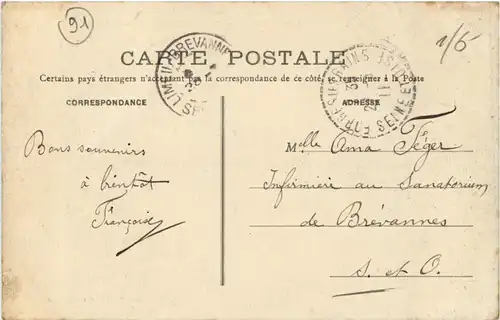 91
1/5
CARTE POSTALE
Certains pays étrangers n'acceptant pas la correspondance de ce côté, se renseigner à la Poste
CORRESPONDANCE
ADRESSE
LIMEIL-BREVANNES
SEINE ET
Bons souvenirs
à bientôt
Françoise
Melle Ama Féger
Infirmière au Sanatorium
de Brévannes
S. et O.